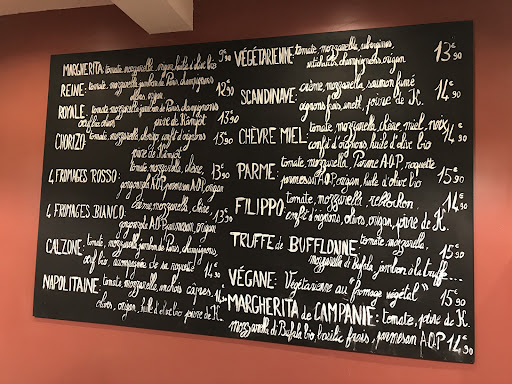 MARGHERITA: tomate, mozzarella, origan, huile d'olive bio 9€90
REINE: tomate, mozzarella, jambon de Paris, champignons
olives, origan 12€90
ROYALE: tomate, mozzarella, jambon de Paris, champignons
œuf bio, chorizo, poivre de Kâmpot 13€90
CHORIZO: tomate, mozzarella, chorizo, confit d'oignons
poivre de Kâmpot 13€90
4 FROMAGES ROSSO: tomate, mozzarella, chèvre,
gorgonzola A.O.P, parmesan A.O.P, origan 13€90
4 FROMAGES BIANCO: crème, mozzarella, chèvre,
gorgonzola A.O.P, parmesan, origan 13€90
CALZONE: tomate, mozzarella, jambon de Paris, champignons
œuf bio, accompagnée de sa roquette 14€90
NAPOLITAINE: tomate, mozzarella, anchois, câpres,
olives, origan, huile d'olive bio poivre de K.
VÉGÉTARIENNE: tomate, mozzarella, aubergines,
artichauts, champignons, origan 13€90
SCANDINAVE: crème, mozzarella, saumon fumé
oignons frais, aneth, poivre de K. 14€90
CHÈVRE MIEL: tomate, mozzarella, chèvre, miel, noix
confit d'oignons, huile d'olive bio 14€90
PARME: tomate, mozzarella, Parme A.O.P, roquette
parmesan A.O.P, origan, huile d'olive bio 15€90
FILIPPO: tomate, mozzarella, reblochon
confit d'oignons, olives, origan, poivre de K. 14€90
TRUFFE de BUFFLONNE: tomate, mozzarella,
mozzarella di Bufala, jambon à la truffe... 15€90
VÉGANE: Végétarienne au "fromage végétal" 15€90
MARGHERITA de CAMPANIE: tomate, poivre de K.
mozzarella di Bufala bio, basilic frais, parmesan A.O.P 14€90